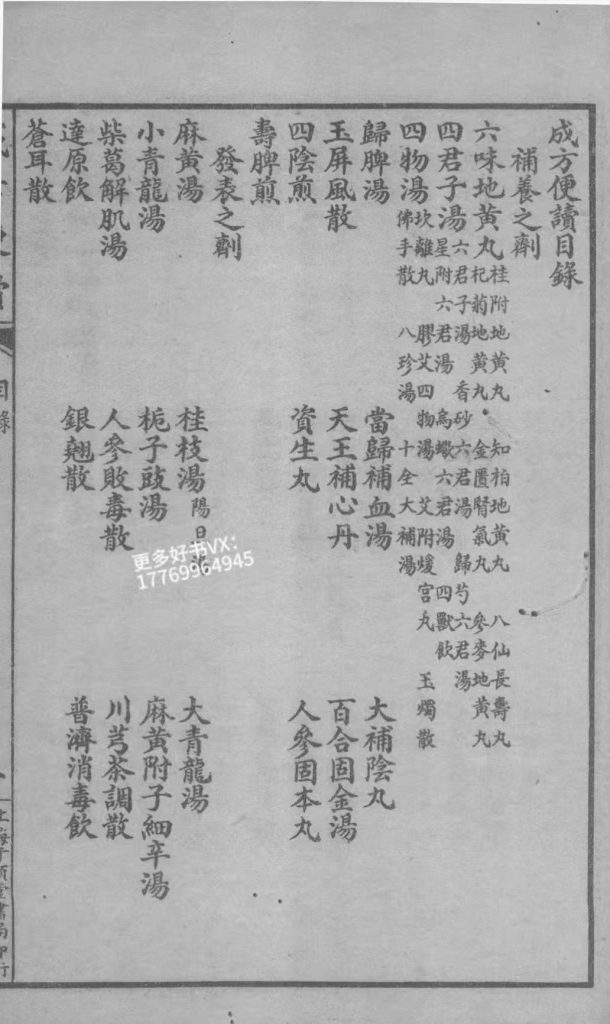 成方便讀目錄
補養之劑
六味地黃丸 桂附地黃丸 知柏地黃丸 八仙長壽丸
杞菊地黃丸 金匱腎氣丸 參麥地黃丸
四君子湯 六君子湯 香砂六君湯 歸芍六君湯
星附六君湯 烏蠍六君湯 四獸飲
四物湯 坎離丸 膠艾四物湯 艾附煖宮丸 玉燭散
佛手散 八珍湯 十全大補湯
歸脾湯 當歸補血湯 大補陰丸
玉屏風散 天王補心丹 百合固金湯
四陰煎 資生丸 人參固本丸
壽脾煎
發表之劑
麻黃湯 桂枝湯 陽旦湯 大青龍湯
小青龍湯 梔子豉湯 麻黃附子細辛湯
柴葛解肌湯 人參敗毒散 川芎茶調散
達原飲 銀翹散 普濟消毒飲
蒼耳散
目錄
更多好书VX：
17769964945